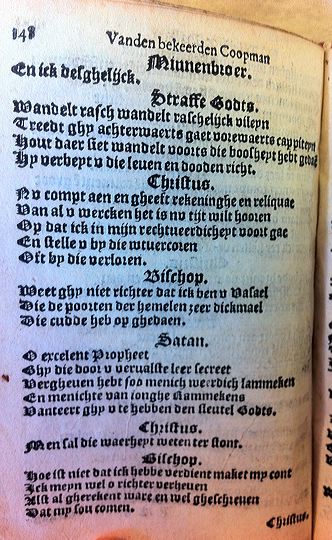 148
Vanden bekeerden Coopman
Minnenbroer.
En ick desghelijck.
Straffe Godts.
Wandelt rasch wandelt raschelijck vileyn
Treedt ghy achterwaerts gaet vorewaerts cappiteyn
Hout daer siet wandelt voorts die boosheyt hebt gedaē
Hy verbeyt v die leuen en dooden richt.
Christus.
Nv compt aen en gheeft rekeninghe en reliquae
Van al v wercken het is nv tijt wilt hooren
Op dat ick in mijn rechtueerdicheyt voort gae
En stelle v by die wtuercoren
Oft by die verloren.
Bischop.
Weet ghy niet richter dat ick ben v Vasael
Die de poorten der hemelen zeer dickmael
Die cudde heb op ghedaen.
Satan.
O excelent Propheet
Ghy die door v verualste leer secreet
Vergheuen hebt soo menich weerdich lammeken
En menichte van ionghe Rammekens
Vanteert ghy v te hebben den sleutel Godts.
Christus.
Men sal die waerheyt weten ter stont.
Bischop.
Hoe ist niet dat ick hebbe verdient maket my cont
Ick meyn wel o richter verheuen
Alst al gherekent ware en wel gheschreuen
Dat my sou comen.
Christus.